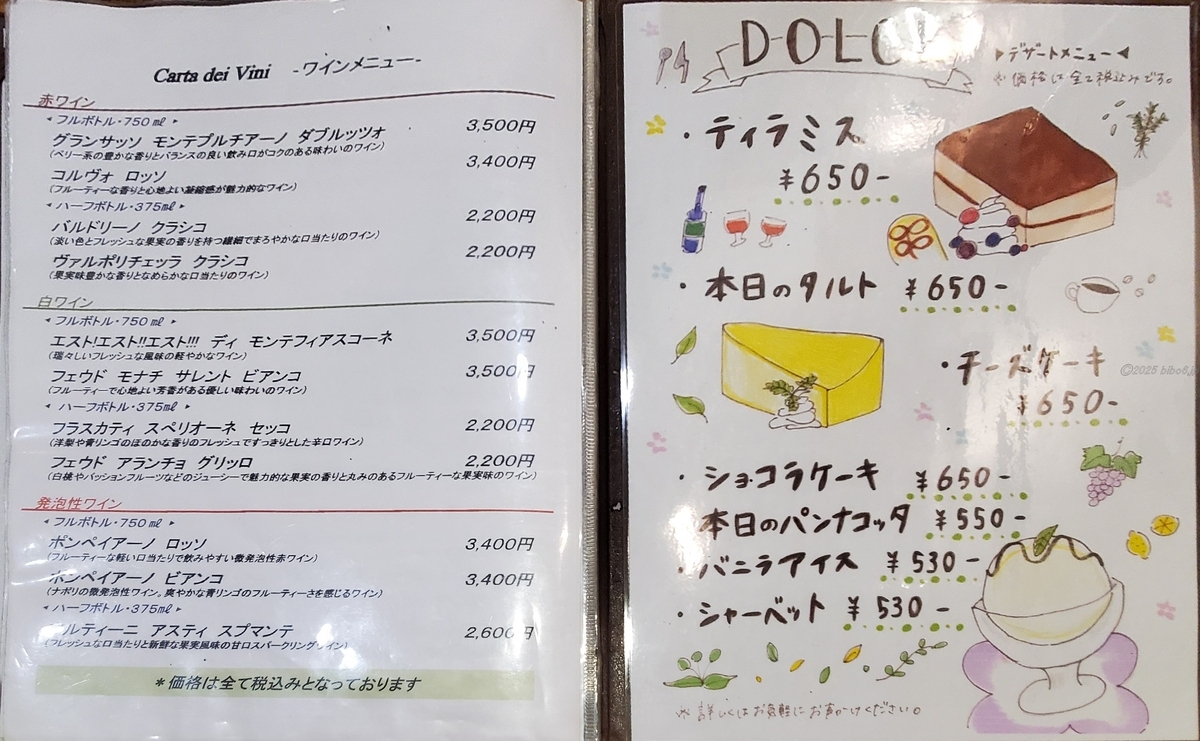 Carta dei Vini -ワインメニュー-
赤ワイン
◂ フルボトル・750㎖ ▸
グランサッソ モンテプルチアーノ ダブルッツオ 3,500円
(ベリー系の豊かな香りとバランスの良い飲み口がコクのある味わいのワイン)
コルヴォ ロッソ 3,400円
(フルーティーな香りと心地よい凝縮感が魅力的なワイン)
◂ ハーフボトル・375㎖ ▸
バルドリーノ クラシコ 2,200円
(淡い色とフレッシュな果実の香りを持つ繊細でまろやかな口当たりのワイン)
ヴァルポリチェッラ クラシコ 2,200円
(果実味豊かな香りとなめらかな口当たりのワイン)
白ワイン
◂ フルボトル・750㎖ ▸
エスト!エスト!!エスト!!! ディ モンテフィアスコーネ 3,500円
(瑞々しいフレッシュな風味の軽やかなワイン)
フェウド モナチ サレント ビアンコ 3,500円
(フルーティーで心地よい芳香がある優しい味わいのワイン)
◂ ハーフボトル・375㎖ ▸
フラスカティ スペリオーネ セッコ 2,200円
(洋梨や青リンゴのほのかな香りのフレッシュですっきりとした辛口ワイン)
フェウド アランチョ グリッロ 2,200円
(白桃やパッションフルーツなどのジューシーで魅力的な果実の香りと丸みのあるフルーティーな果実味のワイン)
発泡性ワイン
◂ フルボトル・750㎖ ▸
ポンペイアーノ ロッソ 3,400円
(フルーティーな軽い口当たりで飲みやすい微発泡性赤ワイン)
ポンペイアーノ ビアンコ 3,400円
(ナポリの微発泡性ワイン。爽やかな青リンゴのフルーティーさを感じるワイン)
◂ ハーフボトル・375㎖ ▸
マルティーニ アスティ スプマンテ 2,600円
(フレッシュな口当たりと新鮮な果実風味の甘口スパークリングワイン)
*価格は全て税込みとなっております
DOLC
▸デザートメニュー◂
※価格は全て税込みです。
・ティラミス
¥650-
・本日のタルト ¥650-
・チーズケーキ
¥650-
©2025 bibo6.j
・ショコラケーキ ¥650-
本日のパンナコッタ ¥550-
・バニラアイス ¥530-
・シャーベット ¥530-
※詳しくはお気軽にお声かけください。